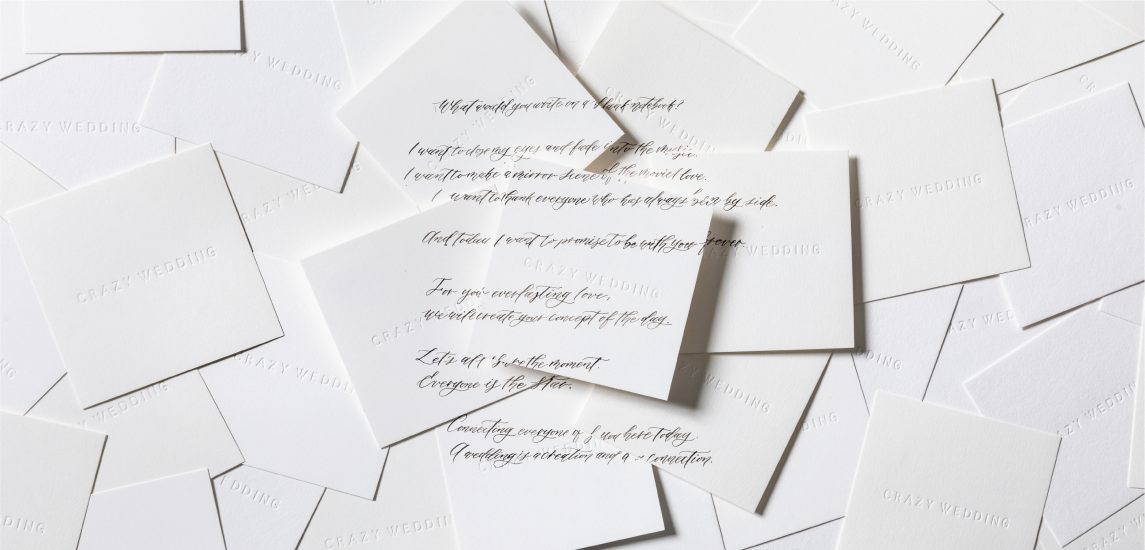 What would you write on a blank notebook?
I want to close my eyes and fade into the music.
I want to make a mirror scene of the movie I love.
I want to thank everyone who has always been by side.
And today I want to promise to be with you forever.
For your everlasting love,
we will create your concept of the day.
Let's all share the moment.
Everyone is the star.
Connecting everyone of you here today
A wedding is a creation and a connection.
CRAZY WEDDING
CRAZY WEDDING
CRAZY WEDDING
CRAZY WEDDING
CRAZY WEDDING
CRAZY WEDDING
CRAZY WEDDING